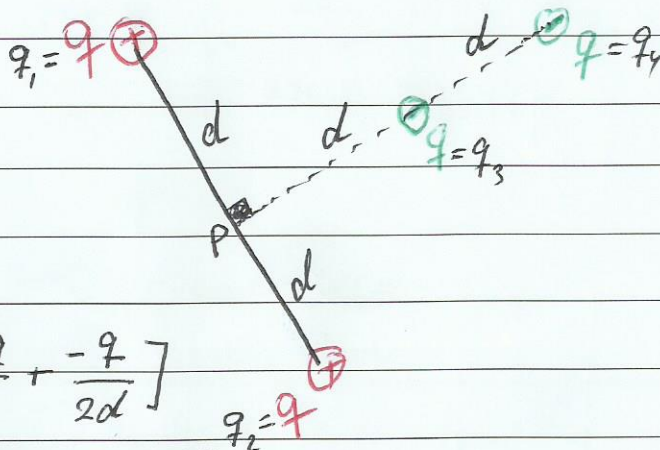 q₁ = q +
d
- q = q₄
d
d
- q = q₃
P
d
+ -q/2d ]
+
q₂ = q